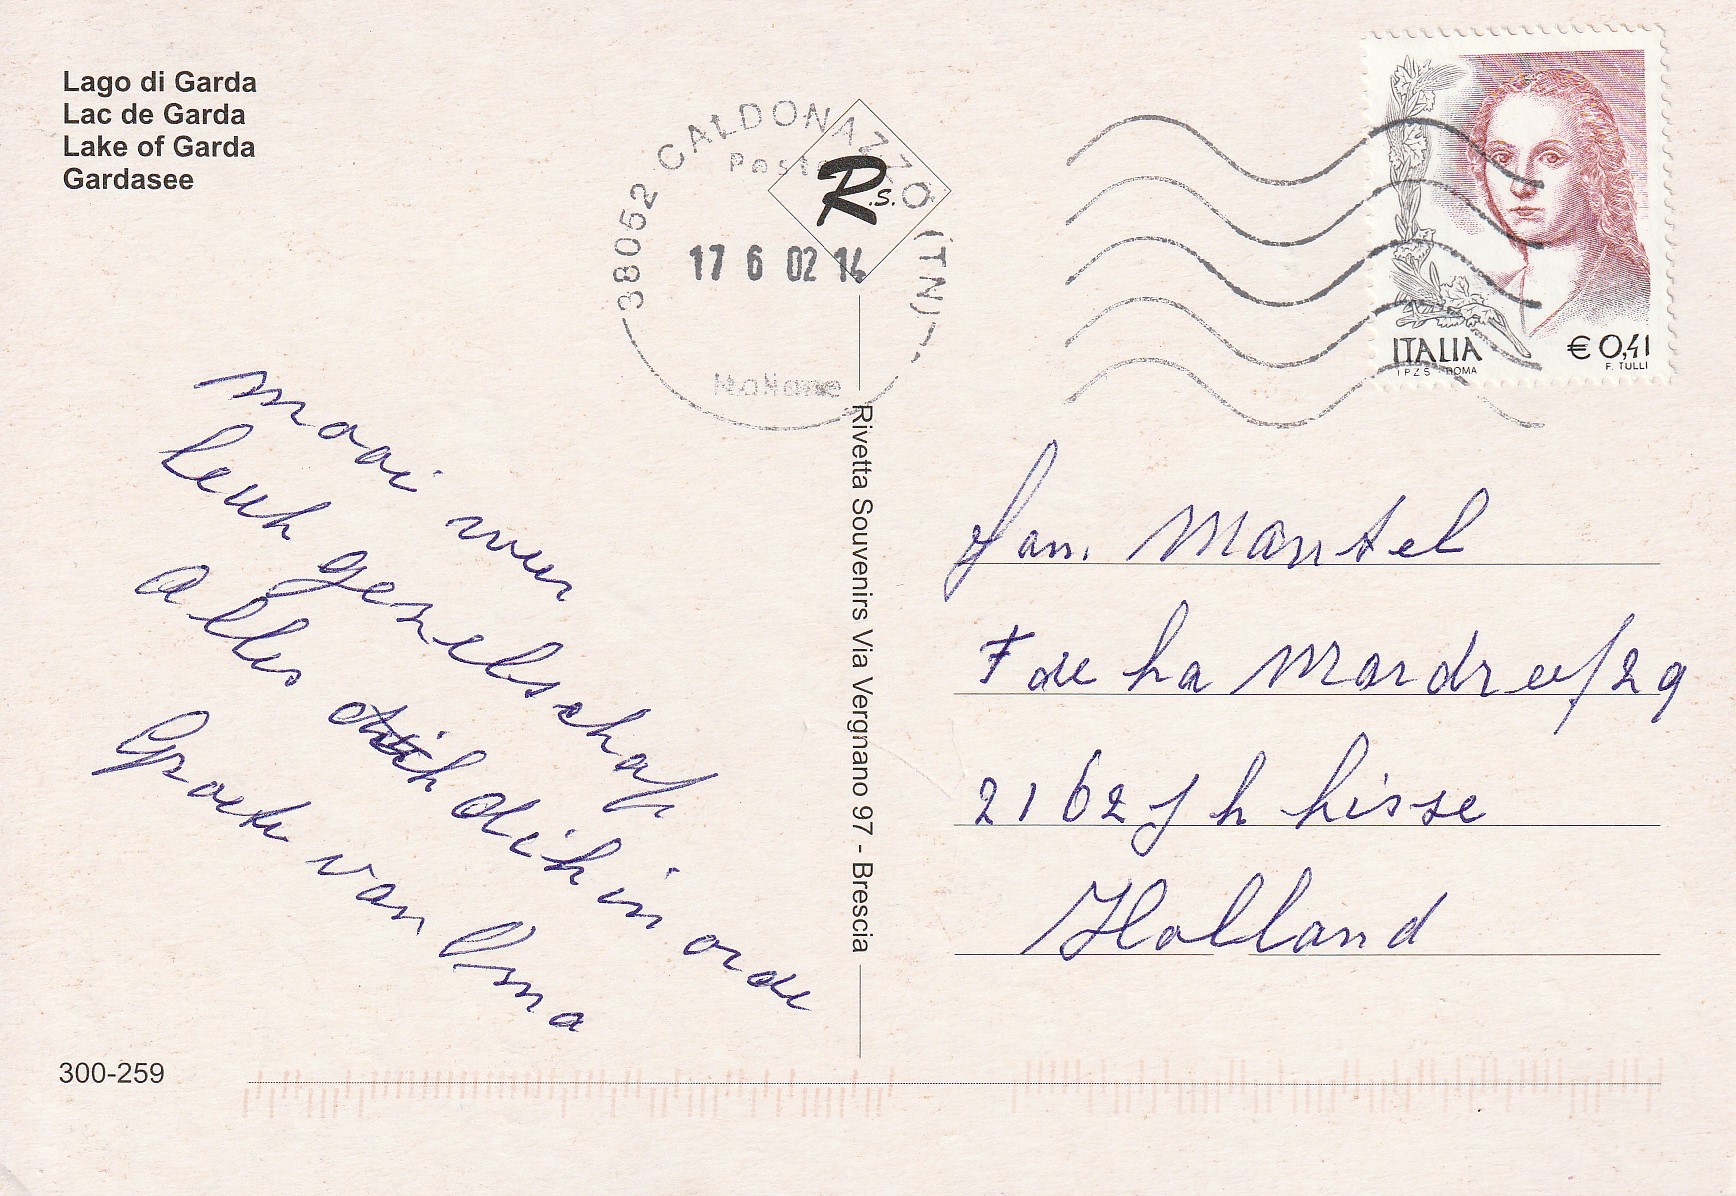 Lago di Garda
Lac de Garda
Lake of Garda
Gardasee
38052 CALDONAZZO (TN)
Poste
17 6 02 14
R.s.
ITALIA
€ 0,41
I.P.Z.S. ROMA
F. TULLI
mooi weer
leuk gezelschap
alles dik in orde
Groeten van Oma
Rivetta Souvenirs Via Vergnano 97 - Brescia
Jan Mantel
F de ha Mardree/29
2162 J h hisse
Holland
300-259